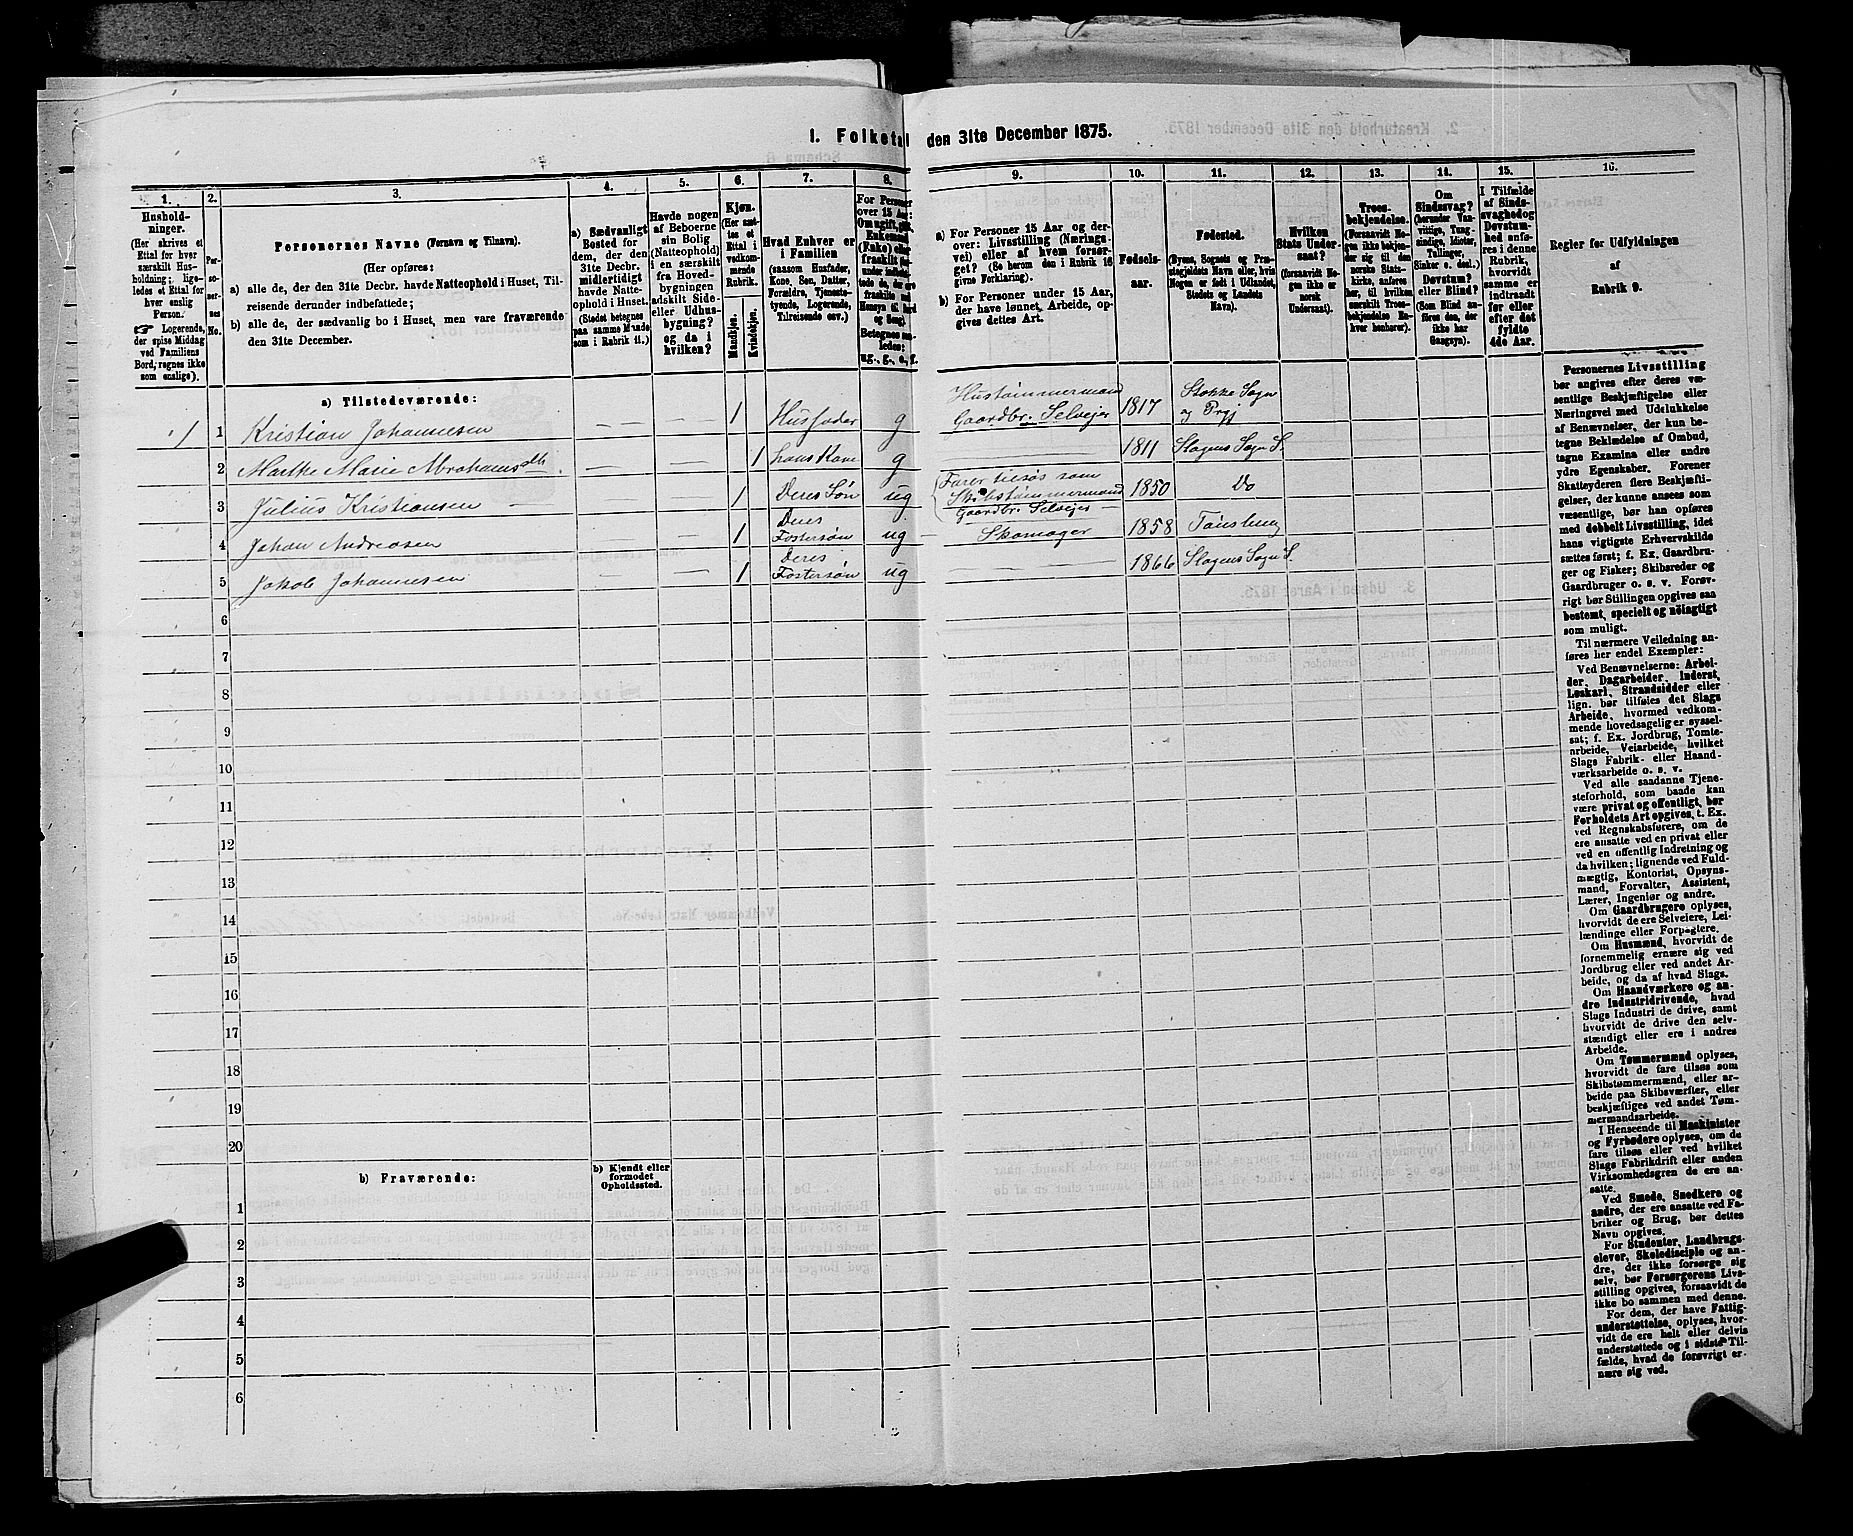 1. Folketal den 31te December 1875.
1.
Hushold-
ninger.
(Her skrives et
Ettal for hver
særskilt Hus-
holdning; lige-
ledes et Ettal for
hver enslig
Person.)
☞ Logerende,
der spise Middag
ved Familiens
Bord, regnes ikke
som enslige).
2.
Per-
so-
ner-
nes
No.
3.
Personernes Navne (Fornavn og Tilnavn).
(Her opføres:
a) alle de, der den 31te Decbr. havde Natteophold i Huset, Til-
reisende derunder indbefattede;
b) alle de, der sædvanlig bo i Huset, men vare fraværende
den 31te December.
4.
a) Sædvanligt
Bosted for
dem, der den
31te Decbr.
midlertidigt
havde Natte-
ophold i Huset.
(Stedet betegnes
paa samme Maade
som i Rubrik 11.)
5.
Havde nogen
af Beboerne
sin Bolig
(Natteophold)
i en særskilt
fra Hoved-
bygningen
adskilt Side-
eller Udhus-
bygning?
og da i
hvilken?
6.
Kjøn.
(Her sæt-
tes et
Ettal i
vedkom-
mende
Rubrik.
Mandkjøn.
Kvindekjøn.
7.
Hvad Enhver er
i Familien
(saasom Husfader,
Kone, Søn, Datter,
Forældre, Tjeneste-
tyende, Logerende,
Tilreisende osv.)
8.
For Personer
over 15 Aar:
9.
a) For Personer 15 Aar og der-
over: Livsstilling (Nærings-
vei) eller af hvem forsør-
get? (Se herom den i Rubrik 16
givne Forklaring).
b) For Personer under 15 Aar,
der have lønnet Arbeide, op-
gives dettes Art.
10.
Fødsels-
aar.
11.
Fødested.
(Byens, Sognets og Præ-
stegjeldets Navn eller, hvis
Nogen er født i Udlandet,
Stedets og Landets
Navn).
12.
Hvilken
Stats Under-
saat?
(forsaavidt No-
gen ikke er
norsk
Undersaat).
13.
Troes-
bekjendelse.
(Forsaavidt No-
gen ikke bekjen-
der sig til den
norske Stats-
kirke, anføres
her, til hvilken
særskilt Troes-
bekjendelse En-
hver henhører).
14.
Om
Sindssvag?
(herunder Van-
vittige, Tung-
sindige, Idioter,
Tullinger,
Sinker o. desl.)
Døvstum?
eller Blind?
(Som Blind an-
føres den, der
ikke har
Gangsyn).
15.
I Tilfælde
af Sinds-
svaghed og
Døvstum-
hed anfø-
res i denne
Rubrik,
hvorvidt
samme er
indtraadt
før eller
efter det
fyldte
4de Aar.
16.
Regler for Udfyldningen
af
Rubrik 9.
a) Tilstedeværende:
1 1 Kristian Johannesen — — 1 Husfader g Hustømmermand Gaardbr. Selveier 1817 Stokke Sogn og Prgj
2 Marthe Marie Abrahamsdtr. — — 1 hans Kone g — 1811 Slagens Sogn S.
3 Julius Kristiansen — — 1 Deres Søn ug Farer tilsøs som Skibstømmermand Gaardbr. Selveier 1850 Do
4 Johan Andreasen — — 1 Deres Fostersøn ug Skomager 1858 Tønsberg
5 Jakob Johannesen — — 1 Deres Fostersøn ug — 1866 Slagens Sogn S.
6
7
8
9
10
11
12
13
14
15
16
17
18
19
20
b) Fraværende:
b) Kjendt eller
formodet
Opholdssted.
1
2
3
4
5
6
Personernes Livsstilling
bør angives efter deres væ-
sentlige Beskjæftigelse eller
Næringsvei med Udelukkelse
af Benævnelser, der kun be-
tegne Beklædelse af Ombud,
tagne Examina eller andre
ydre Egenskaber. Forener
Skatteyderen flere Beskjæfti-
gelser, der kunne ansees som
væsentlige, bør han opføres
med dobbelt Livsstilling, idet
hans vigtigste Erhvervskilde
sættes først; f. Ex. Gaardbru-
ger og Fisker; Skibsreder og
Gaardbruger o. s. v. Forøv-
rigt bør Stillingen opgives saa
bestemt, specielt og nøiagtigt
som muligt.
Til nærmere Veiledning an-
føres her endel Exempler:
Ved Benævnelserne: Arbei-
der, Dagarbeider, Inderst,
Løskarl, Strandsidder eller
lign. bør tilføies det Slags
Arbeide, hvormed vedkom-
mende hovedsagelig er syssel-
sat; f. Ex. Jordbrug, Tomte-
arbeide, Veiarbeide, hvilket
Slags Fabrik- eller Haand-
værksarbeide o. s. v.
Ved alle saadanne Tjene-
steforhold, som baade kan
være privat og offentligt, bør
Forholdets Art opgives, t. Ex.
ved Regnskabsførere, om de
ere ansatte ved en privat eller
ved en offentlig Indretning og
da hvilken; lignende ved Fuld-
mægtig, Kontorist, Opsyns-
mand, Forvalter, Assistent,
Lærer, Ingeniør og andre.
Om Gaardbrugere oplyses,
hvorvidt de ere Selveiere, Lei-
lændinge eller Forpagtere.
Om Husmænd, hvorvidt de
fornemmelig ernære sig ved
Jordbrug eller ved andet Ar-
beide, og da af hvad Slags.
Om Haandværkere og an-
dre Industridrivende, hvad
Slags Industri de drive, samt
hvorvidt de drive den selv-
stændigt eller ere i andres
Arbeide.
Om Tømmermænd oplyses,
hvorvidt de fare tilsøs som
Skibstømmermænd, eller ar-
beide paa Skibsværfter, eller
beskjæftiges ved andet Tøm-
mermandsarbeide.
I Henseende til Maskinister
og Fyrbødere oplyses, om de
fare tilsøs eller ved hvilket
Slags Fabrikdrift eller anden
Virksomhedsgren de ere an-
satte.
Ved Smede, Snedkere og
andre, der ere ansatte ved Fa-
briker og Brug, bør dettes
Navn opgives.
For Studenter, Landbrugs-
elever, Skoledisciple og an-
dre, der ikke forsørge sig
selv, bør Forsørgerens Livs-
stilling opgives, forsaavidt de
ikke bo sammen med denne.
For dem, der have Fattig-
understøttelse, oplyses, hvor-
vidt de ere helt eller delvis
understøttede og i sidste Til-
fælde, hvad de forøvrigt er-
nære sig ved.